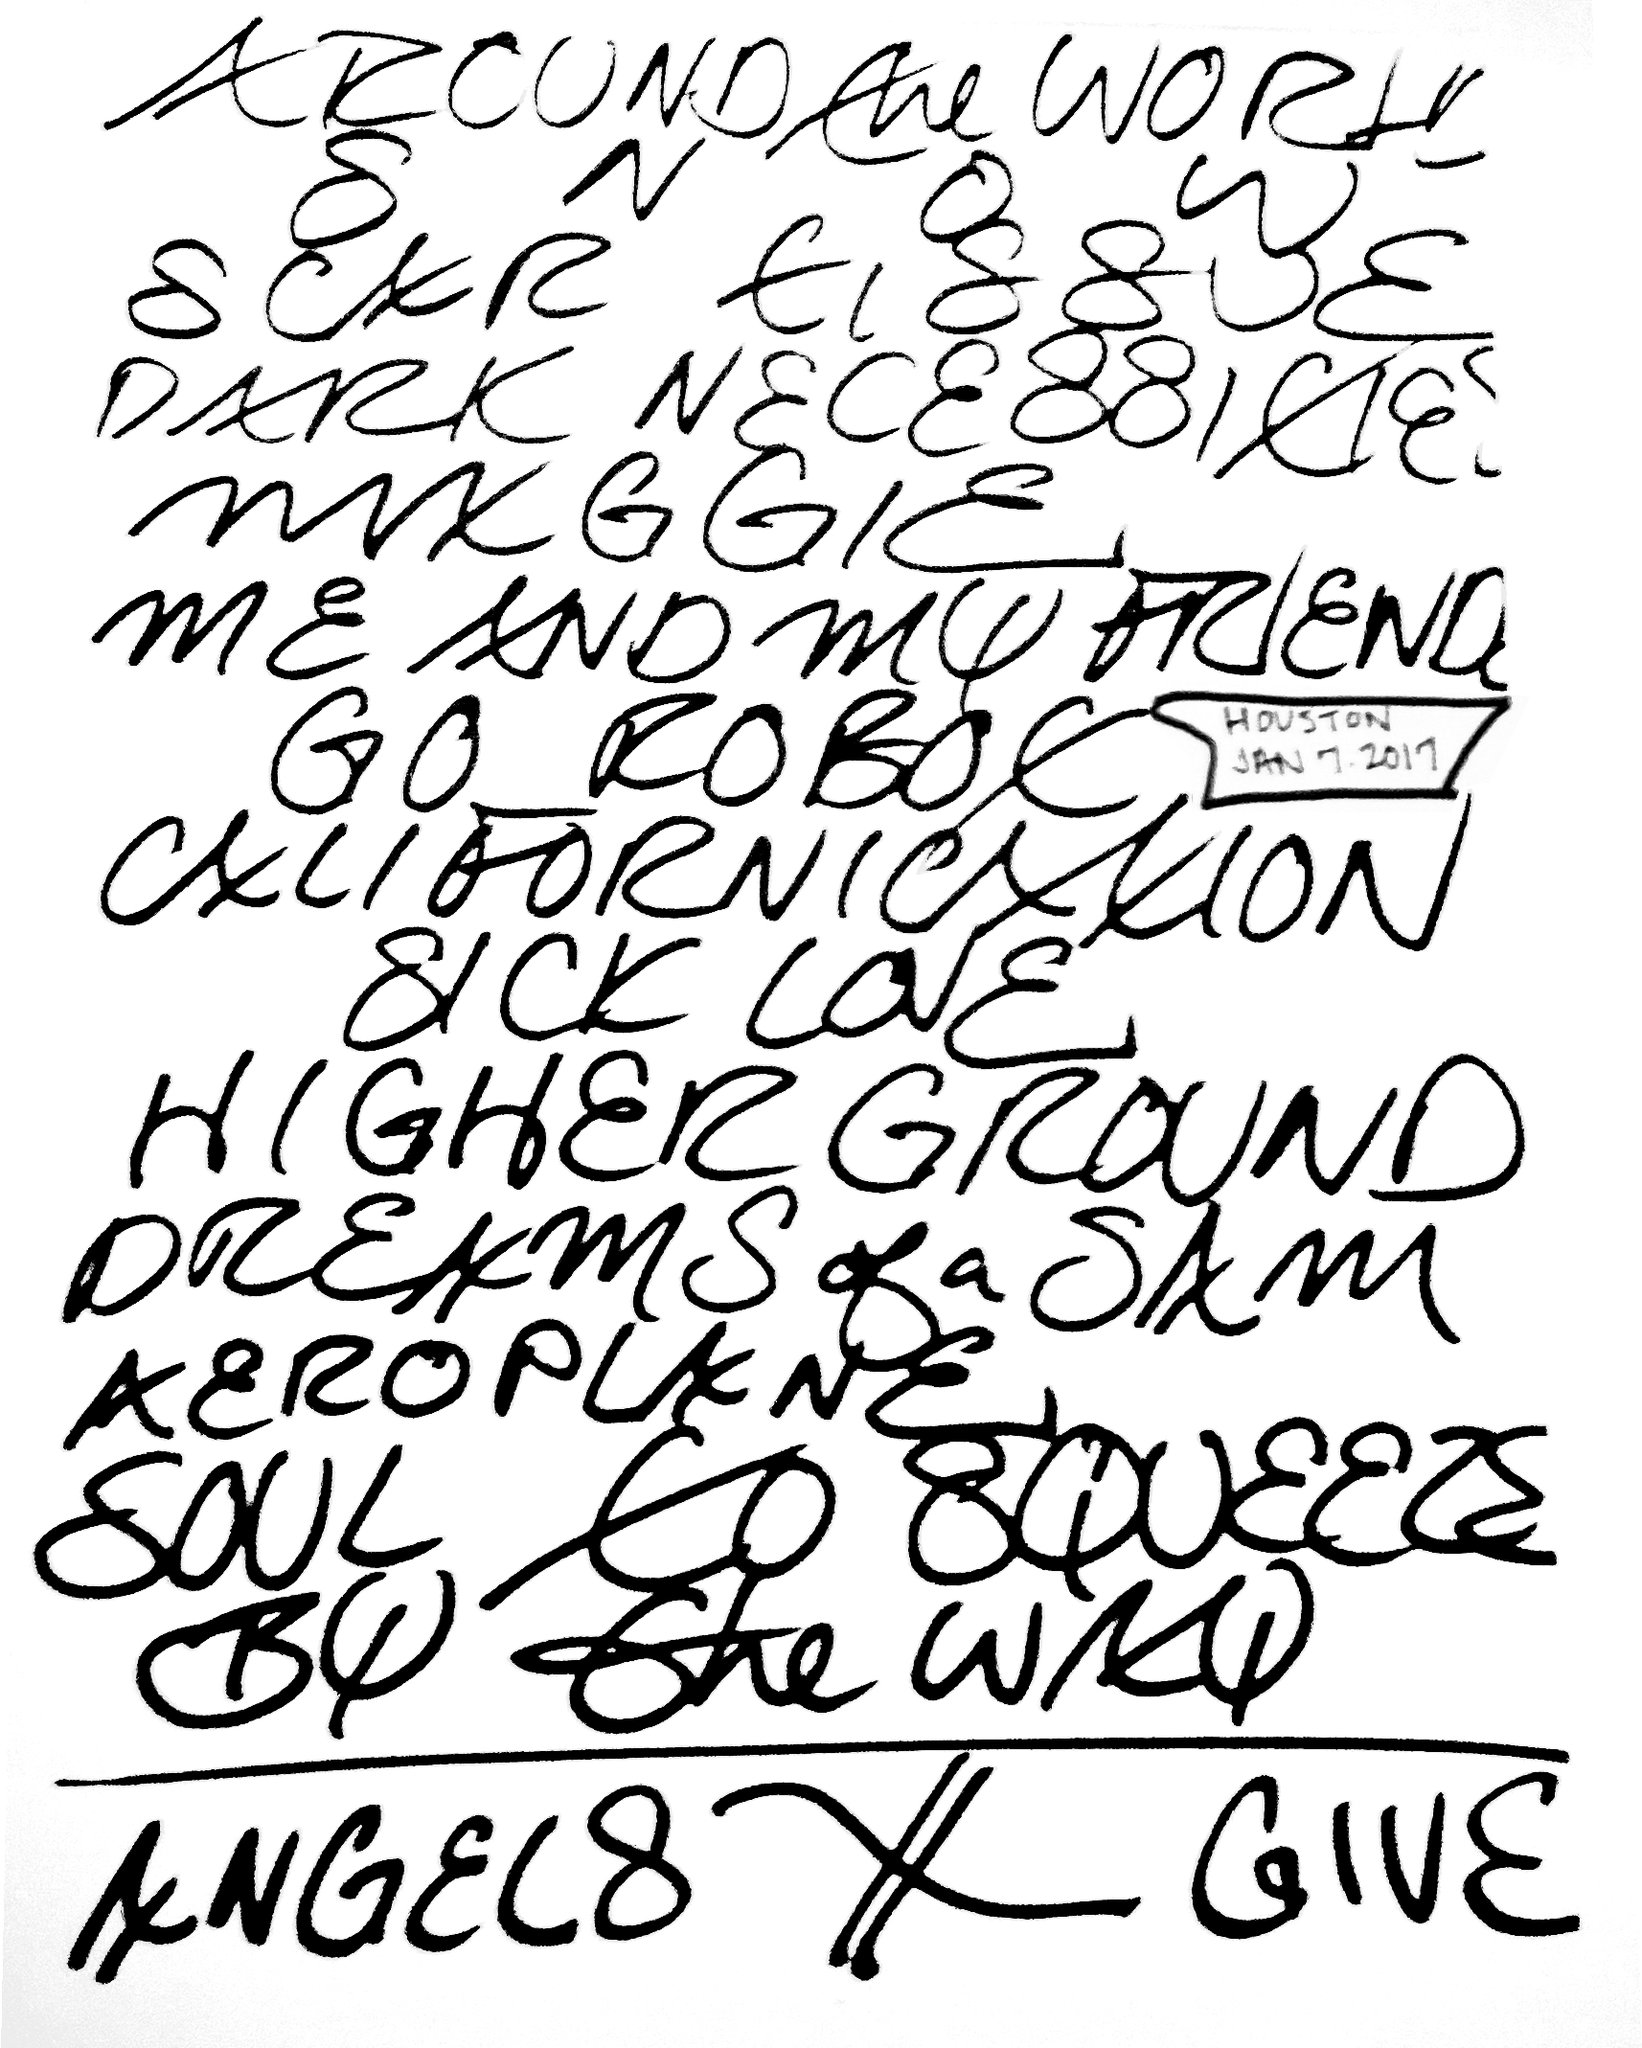 AROUND the WORLD
SNOW
SCAR TISSUE
DARK NECESSITIES
MAGGIE
ME AND MY FRIENDS
GO ROBOT
HOUSTON
JAN 7.2017
CALIFORNICATION
SICK LOVE
HIGHER GROUND
DREAMS of a SAM
AEROPLANE
SOUL TO SQUEEZE
BY the WAY
ANGELS // GIVE